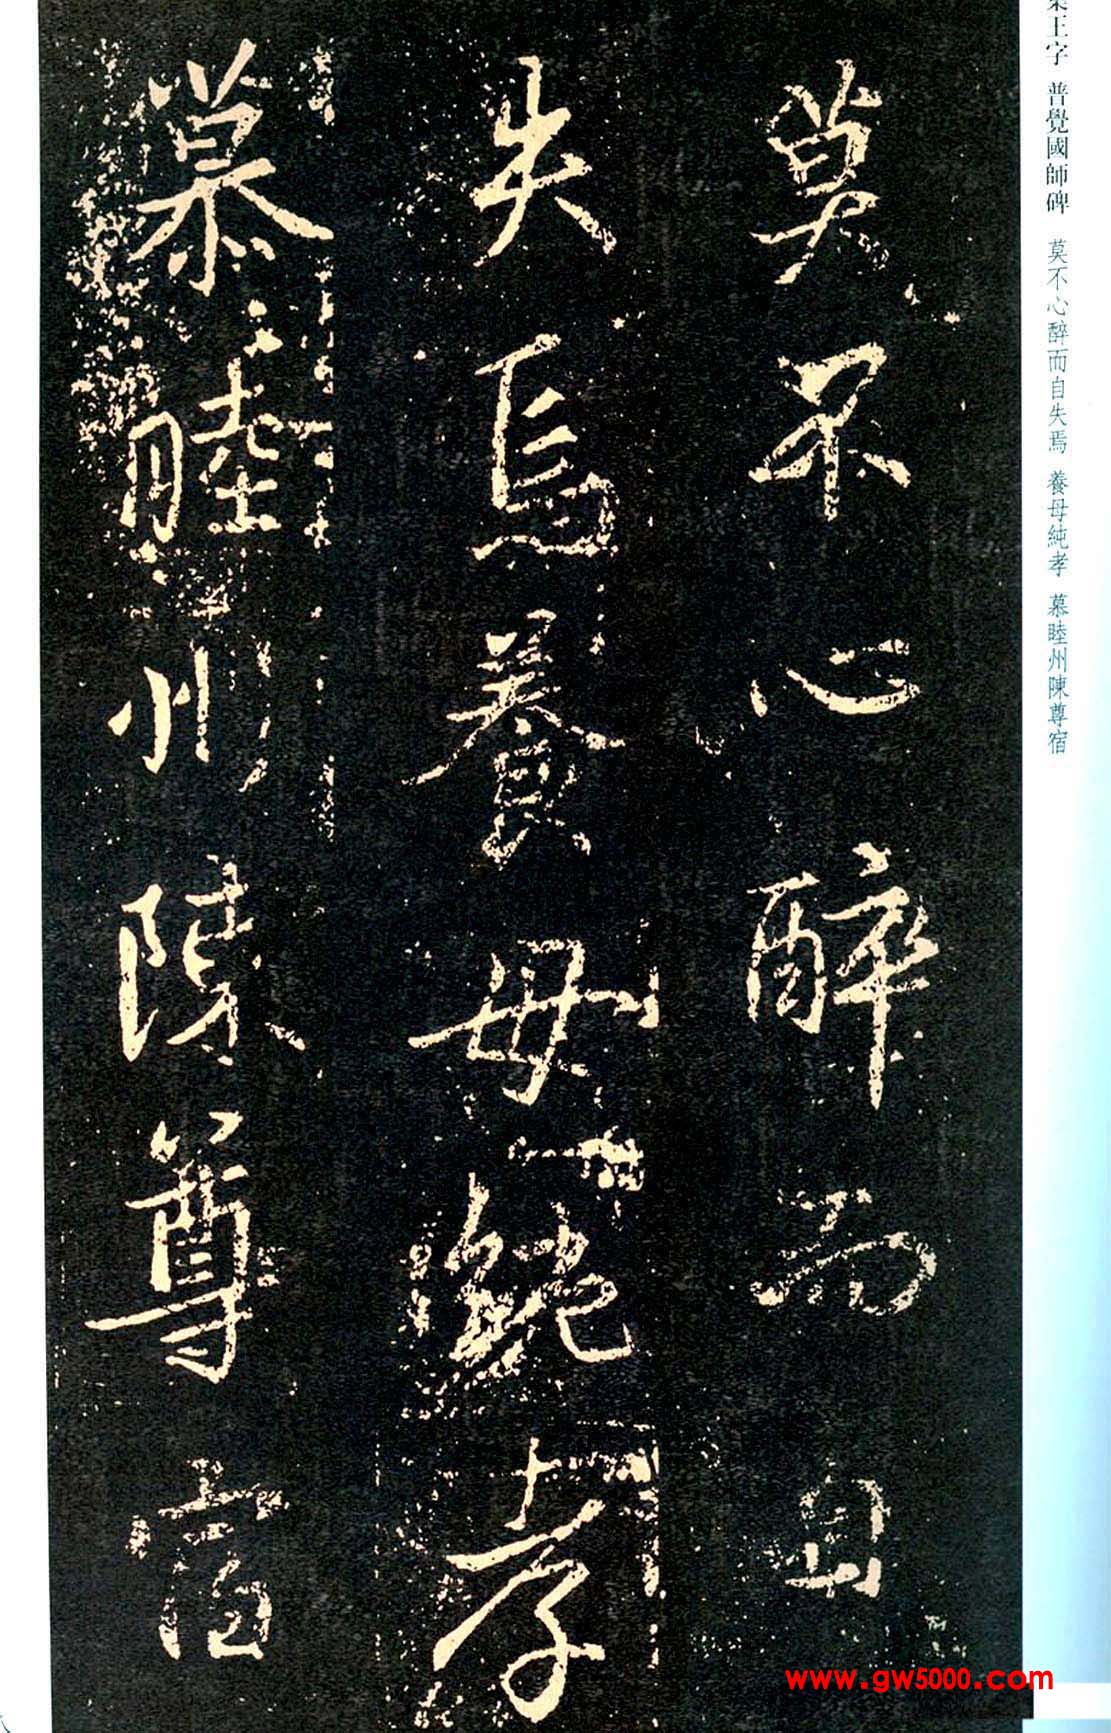 莫不心醉而自
失焉養母純孝
慕睦州陳尊宿
集王字 普覺國師碑 莫不心醉而自失焉 養母純孝 慕睦州陳尊宿
www.gw5000.com